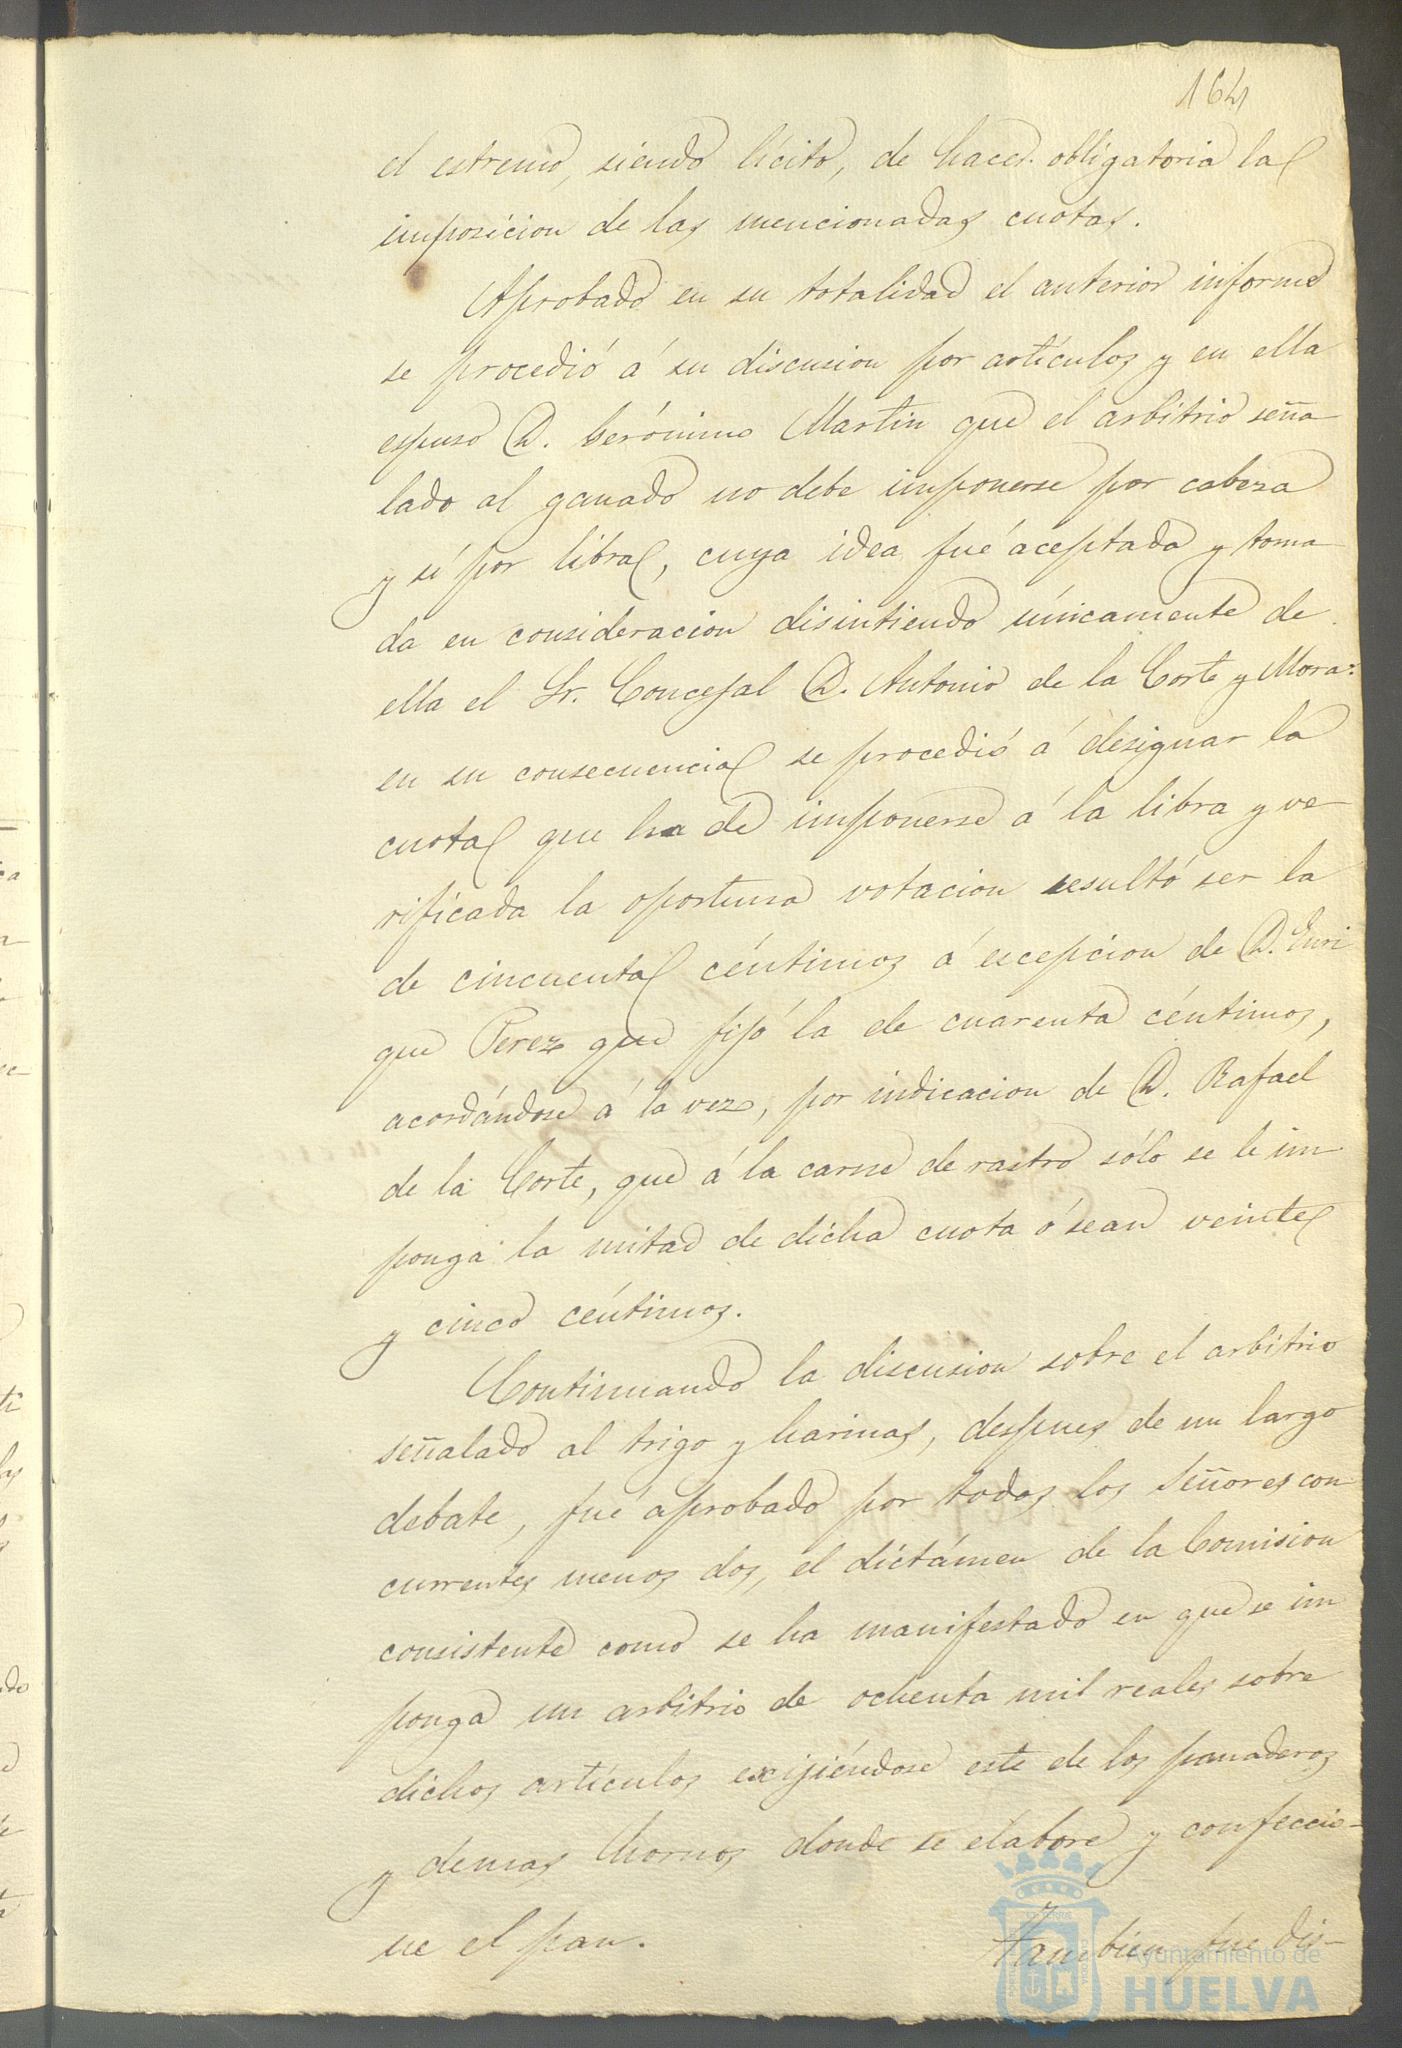 164
el estremo, siendo lícito, de hacer obligatoria la
imposicion de las mencionadas cuotas.
Aprobado en su totalidad el anterior informe
se procedió á su discusion por artículos y en ella
espuso D. Gerónimo Martin que el arbitrio seña
lado al ganado no debe imponerse por cabeza
y sí por libra, cuya idea fué aceptada y toma
da en consideracion disintiendo únicamente de
ella el Sr. Concejal D. Antonio de la Corte y Mora:
en su consecuencia se procedió á designar la
cuota que ha de imponerse á la libra y ve
rificada la oportuna votacion resultó ser la
de cincuenta céntimos á escepcion de D. Enri
que Perez que fijó la de cuarenta céntimos,
acordándose á la vez, por indicacion de D. Rafael
de la Corte, que á la carne de rastro sólo se le im
ponga la mitad de dicha cuota ó sean veinte
y cinco céntimos.
Continuando la discusion sobre el arbitrio
señalado al trigo y harinas, despues de un largo
debate, fué aprobado por todos los Señores con
currentes menos dos, el dictámen de la Comision
consistente como se ha manifestado en que se im
ponga un arbitrio de ochenta mil reales sobre
dichos artículos exijiéndose este de los panaderos
y demas hornos donde se elabore y confeccio-
ne el pan. Tambien fue dis-
Ayuntamiento de
HUELVA